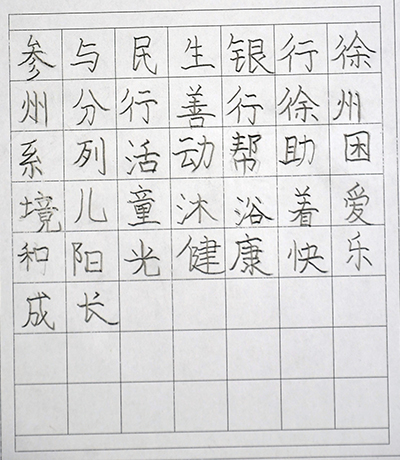 参与民生银行徐
州分行善行徐州
系列活动帮助困
境儿童沐浴着爱
和阳光健康快乐
成长